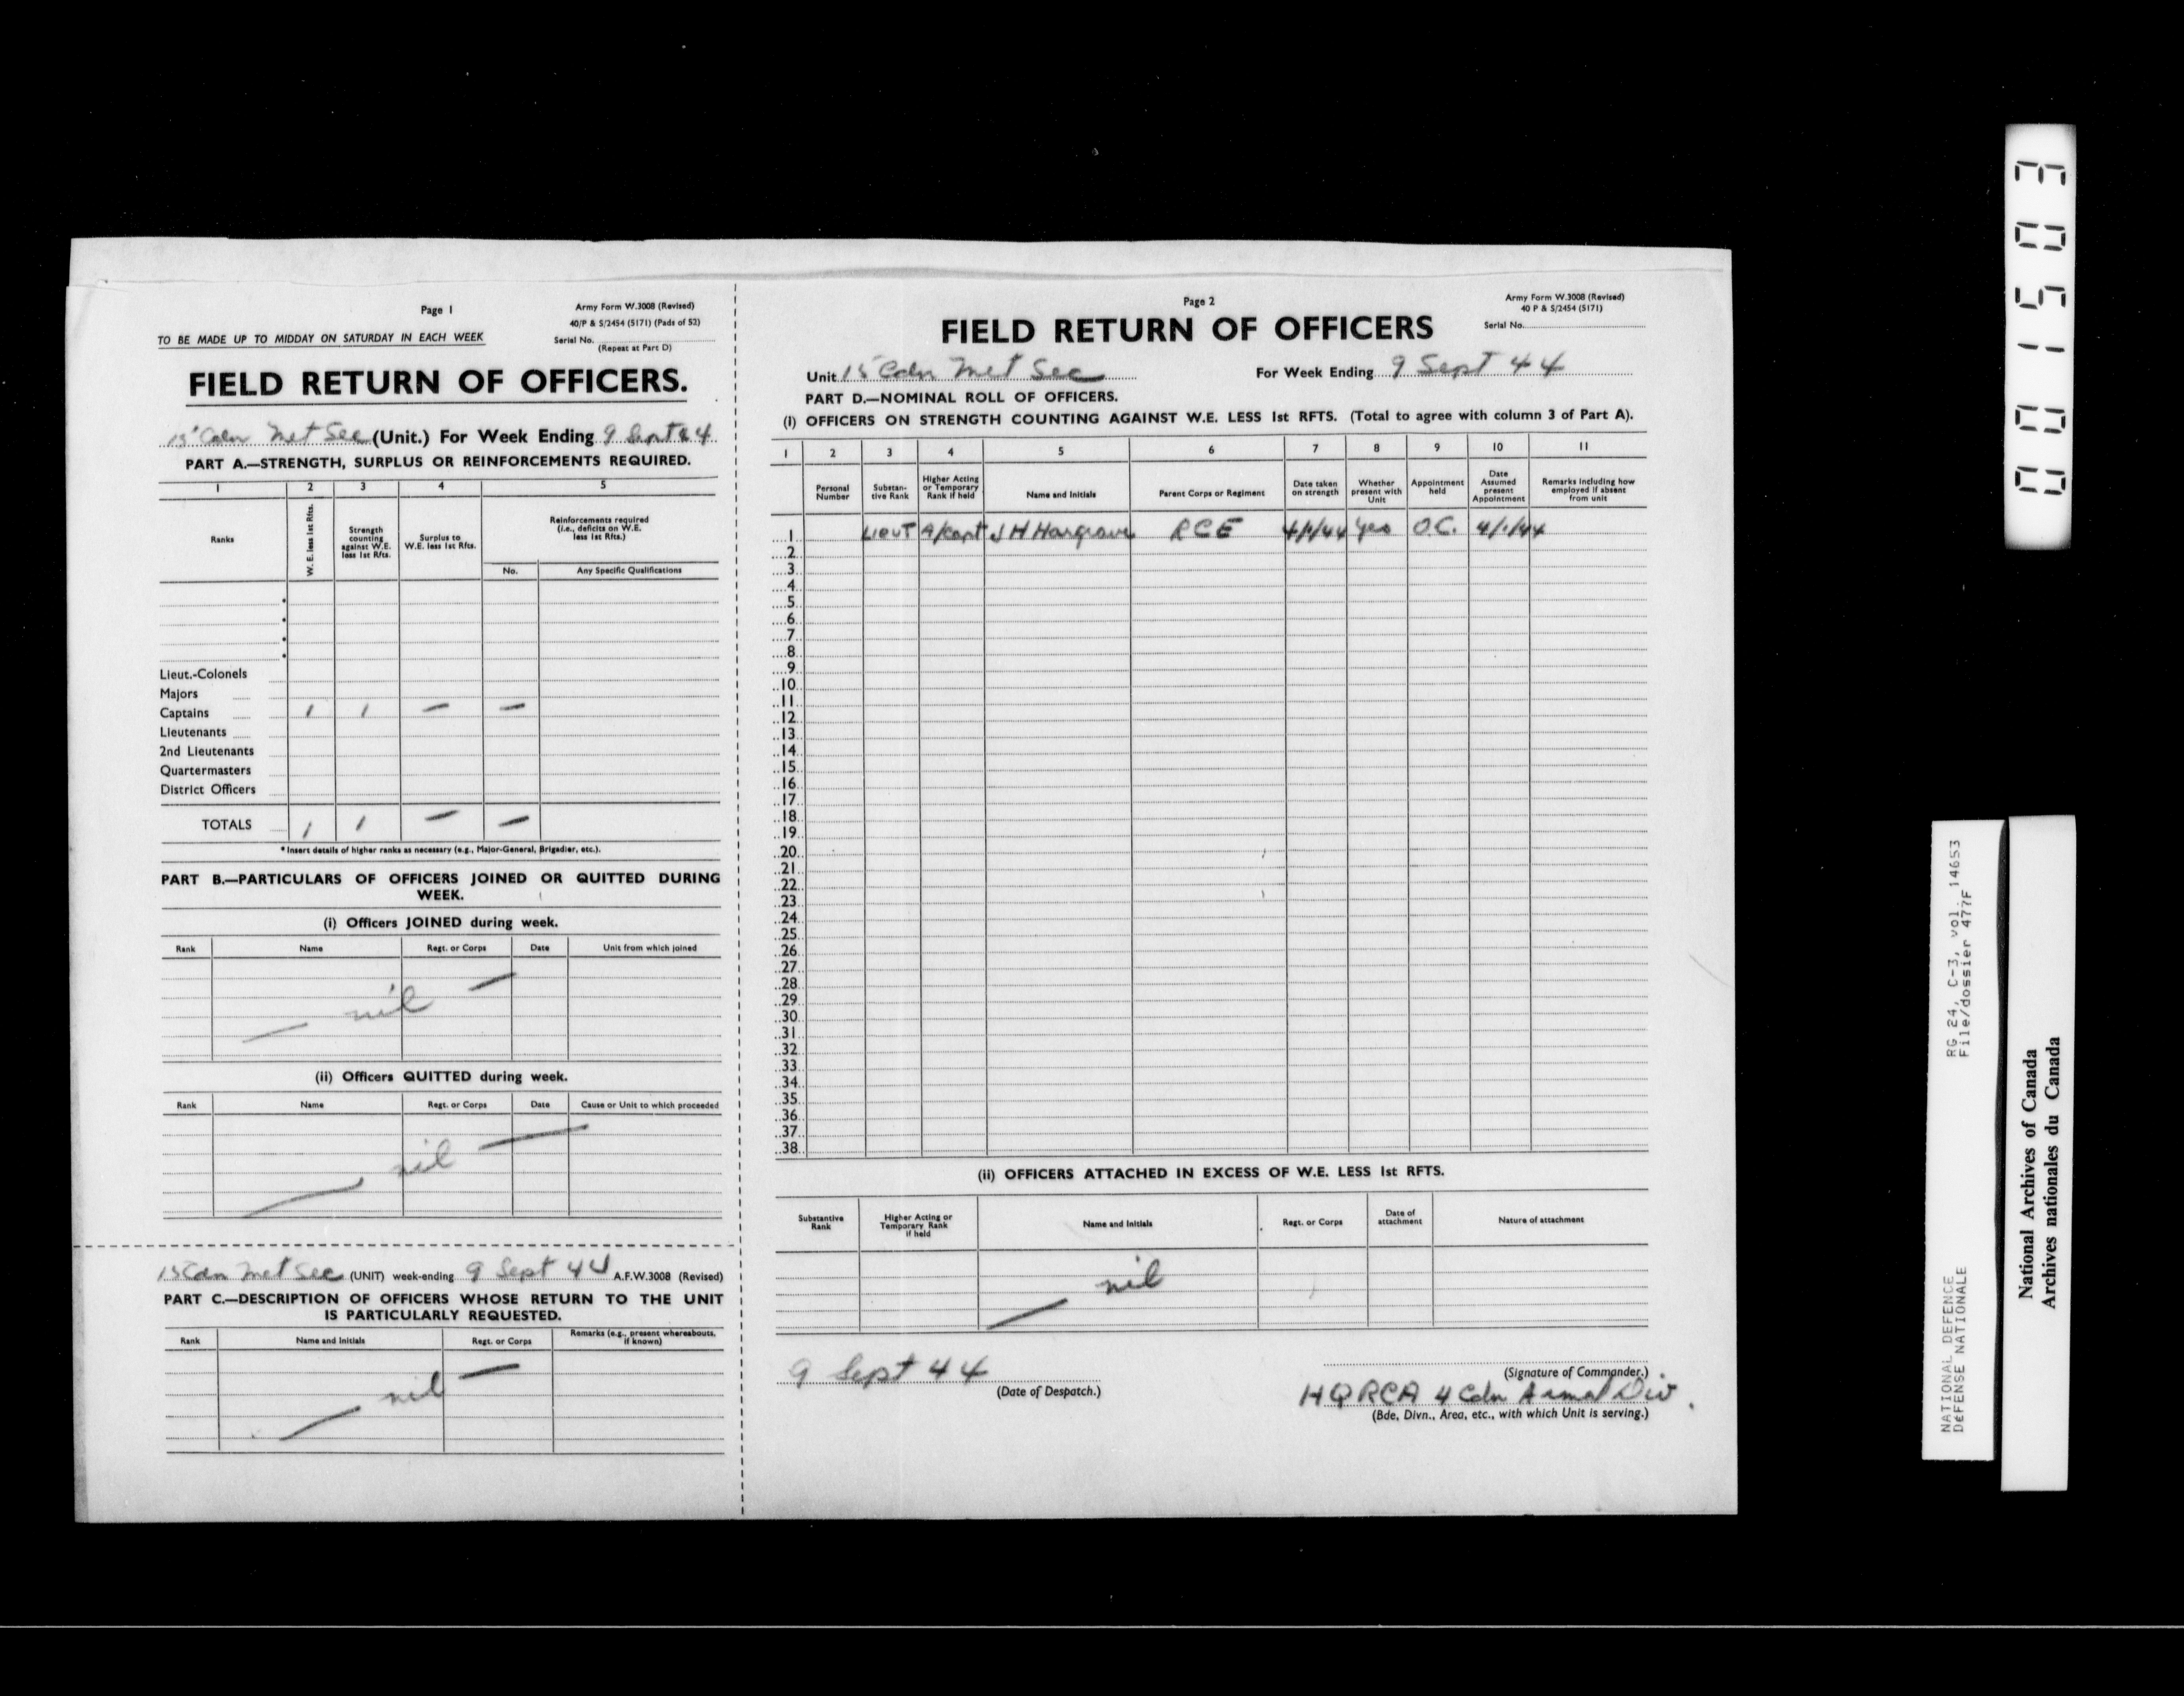 Page 1
Army Form W.3008 (Revised)
40/P & S/2454 (5171) (Pads of 52)
TO BE MADE UP TO MIDDAY ON SATURDAY IN EACH WEEK
Serial No.
(Repeat at Part D)
FIELD RETURN OF OFFICERS.
15 Cdn Met Sec (Unit.) For Week Ending 9 Sept 44
PART A.—STRENGTH, SURPLUS OR REINFORCEMENTS REQUIRED.
1 2 3 4 5
Ranks
W.E. less 1st Rfts.
Strength counting against W.E. less 1st Rfts.
Surplus to W.E. less 1st Rfts.
Reinforcements required (i.e., deficits on W.E. less 1st Rfts.)
No. Any Specific Qualifications
Lieut.-Colonels
Majors
Captains 1 1 — —
Lieutenants
2nd Lieutenants
Quartermasters
District Officers
TOTALS 1 1 — —
* Insert details of higher ranks as necessary (e.g., Major-General, Brigadier, etc.).
PART B.—PARTICULARS OF OFFICERS JOINED OR QUITTED DURING
WEEK.
(i) Officers JOINED during week.
Rank Name Regt. or Corps Date Unit from which joined
— nil —
(ii) Officers QUITTED during week.
Rank Name Regt. or Corps Date Cause or Unit to which proceeded
— nil —
15 Cdn Met Sec (UNIT) week-ending 9 Sept 44 A.F.W.3008 (Revised)
PART C.—DESCRIPTION OF OFFICERS WHOSE RETURN TO THE UNIT
IS PARTICULARLY REQUESTED.
Rank Name and Initials Regt. or Corps Remarks (e.g., present whereabouts, if known)
— nil —
Page 2
Army Form W.3008 (Revised)
40 P & S/2454 (5171)
Serial No.
FIELD RETURN OF OFFICERS
Unit 15 Cdn Met Sec For Week Ending 9 Sept 44
PART D.—NOMINAL ROLL OF OFFICERS.
(i) OFFICERS ON STRENGTH COUNTING AGAINST W.E. LESS 1st RFTS. (Total to agree with column 3 of Part A).
1 2 3 4 5 6 7 8 9 10 11
Personal Number
Substan-tive Rank
Higher Acting or Temporary Rank if held
Name and Initials
Parent Corps or Regiment
Date taken on strength
Whether present with Unit
Appointment held
Date Assumed present Appointment
Remarks including how employed if absent from unit
1 Lieut A/Capt J H Hargrave RCE 4/1/44 Yes O.C. 4/1/44
2
3
4
5
6
7
8
9
10
11
12
13
14
15
16
17
18
19
20
21
22
23
24
25
26
27
28
29
30
31
32
33
34
35
36
37
38
(ii) OFFICERS ATTACHED IN EXCESS OF W.E. LESS 1st RFTS.
Substantive Rank
Higher Acting or Temporary Rank if held
Name and Initials
Regt. or Corps
Date of attachment
Nature of attachment
— nil
9 Sept 44
(Date of Despatch.)
(Signature of Commander.)
HQ RCA 4 Cdn Armd Div.
(Bde, Divn., Area, etc., with which Unit is serving.)
001503
NATIONAL DEFENCE RG 24, C-3, vol. 14653
DéFENSE NATIONALE File/dossier 477F
National Archives of Canada
Archives nationales du Canada